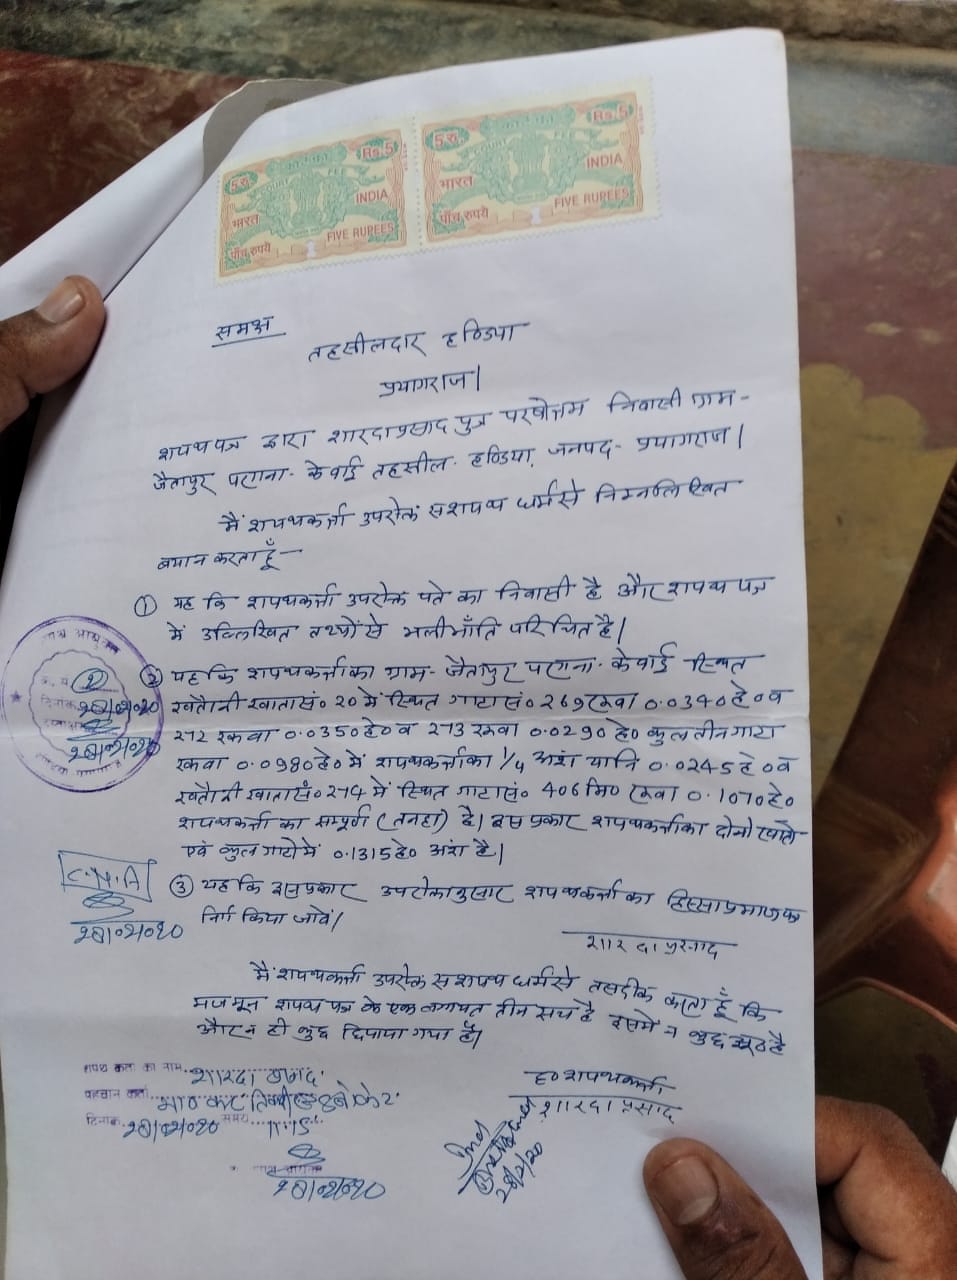 5 रु. कोर्ट फीस Rs.5
COURT FEE
भारत INDIA
पाँच रुपये FIVE RUPEES
5 रु. कोर्ट फीस Rs.5
COURT FEE
भारत INDIA
पाँच रुपये FIVE RUPEES
समक्ष
तहसीलदार हण्डिया
प्रयागराज।
शपथपत्र द्वारा शारदाप्रसाद पुत्र परषोत्तम निवासी ग्राम-
जैतापुर परगना- केवाई तहसील- हण्डिया, जनपद- प्रयागराज।
मैं शपथकर्त्ता उपरोक्त सशपथ धर्म से निम्नलिखित
बयान करता हूँ—
① यह कि शपथकर्त्ता उपरोक्त पते का निवासी है और शपथ पत्र
में उल्लिखित तथ्यों से भलीभाँति परिचित है।
② यह कि शपथकर्त्ता का ग्राम- जैतापुर परगना- केवाई स्थित
खतौनी खाता सं० 20 में स्थित गाटा सं० 269 रकवा 0.0340 हे० व
272 रकवा 0.0350 हे० व 273 रकवा 0.0290 हे० कुल तीन गाटा
रकवा 0.0980 हे० में शपथकर्त्ता का 1/4 अंश यानि 0.0245 हे० व
खतौनी खाता सं० 274 में स्थित गाटा सं० 406 मि० रकवा 0.1070 हे०
शपथकर्त्ता का सम्पूर्ण (तनहा) है। इस प्रकार शपथकर्त्ता का दोनो खातो
एवं कुल गाटो में 0.1315 हे० अंश है।
③ यह कि इस प्रकार उपरोक्तानुसार शपथकर्त्ता का हिस्सा प्रमाण पत्र
निर्गत किया जावे।
शारदा प्रसाद
मैं शपथकर्त्ता उपरोक्त सशपथ धर्म से तसदीक करता हूँ कि
मजमून शपथ पत्र के एक लगायत तीन सच है इसमे न कुछ झूठ है
और न ही कुछ छिपाया गया है।
शपथ कर्ता का नाम शारदा प्रसाद
पहचान कर्ता
दिनांक 28/02/2020 समय
ह० शपथकर्त्ता
शारदा प्रसाद
28/2/20
28/02/2020